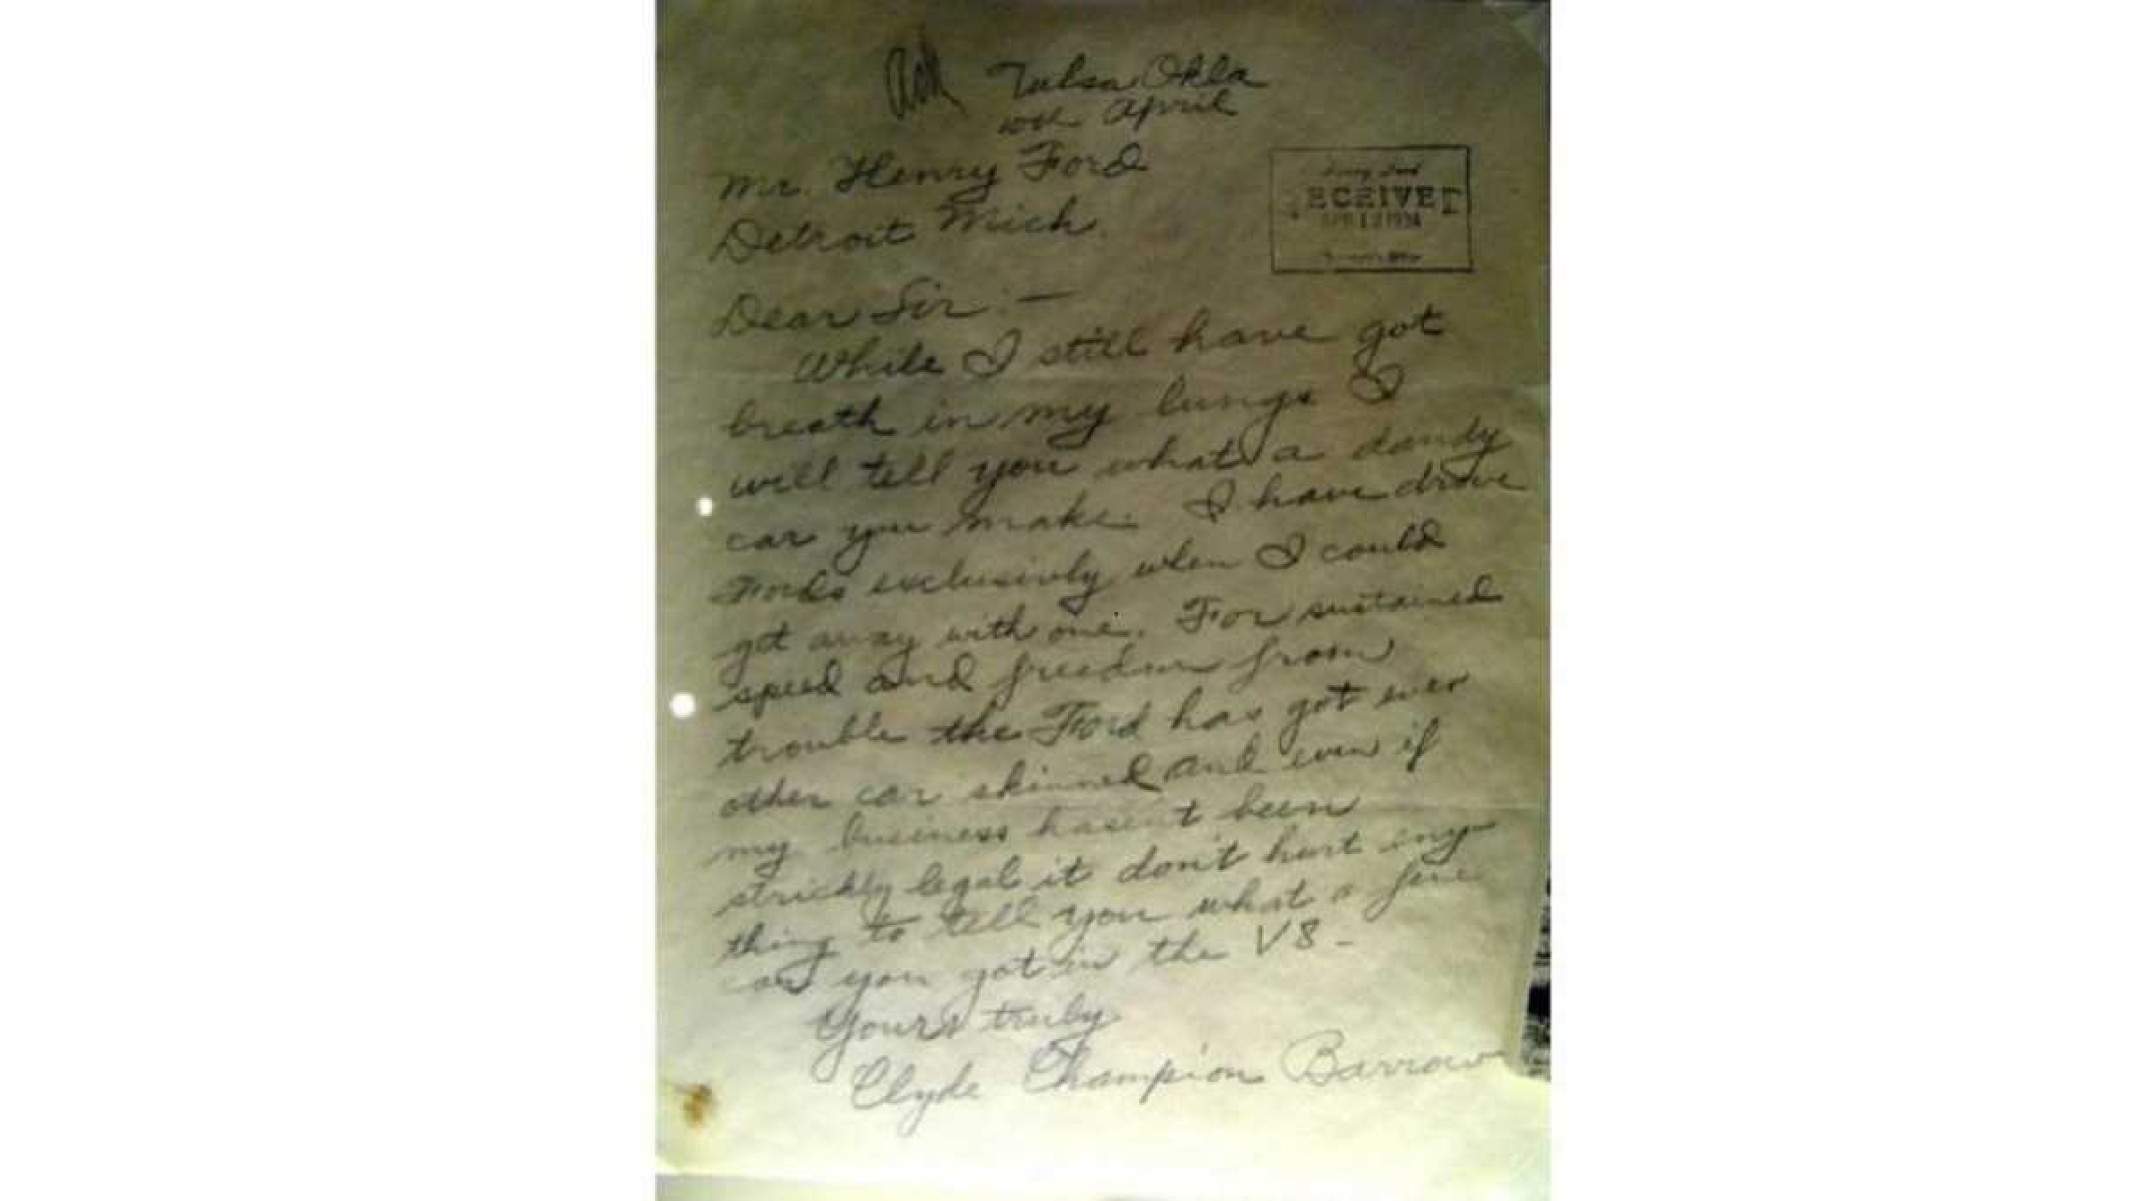 Tulsa Okla
10th April
Mr. Henry Ford
Detroit Mich.
RECEIVED
APR 13 1934
Dear Sir:—
While I still have got
breath in my lungs I
will tell you what a dandy
car you make. I have drove
Fords exclusivly when I could
get away with one. For sustained
speed and freedom from
trouble the Ford has got ever
other car skinned and even if
my business hasen't been
strickly legal it don't hurt eny
thing to tell you what a fine
car you got in the V8-
Yours truly
Clyde Champion Barrow